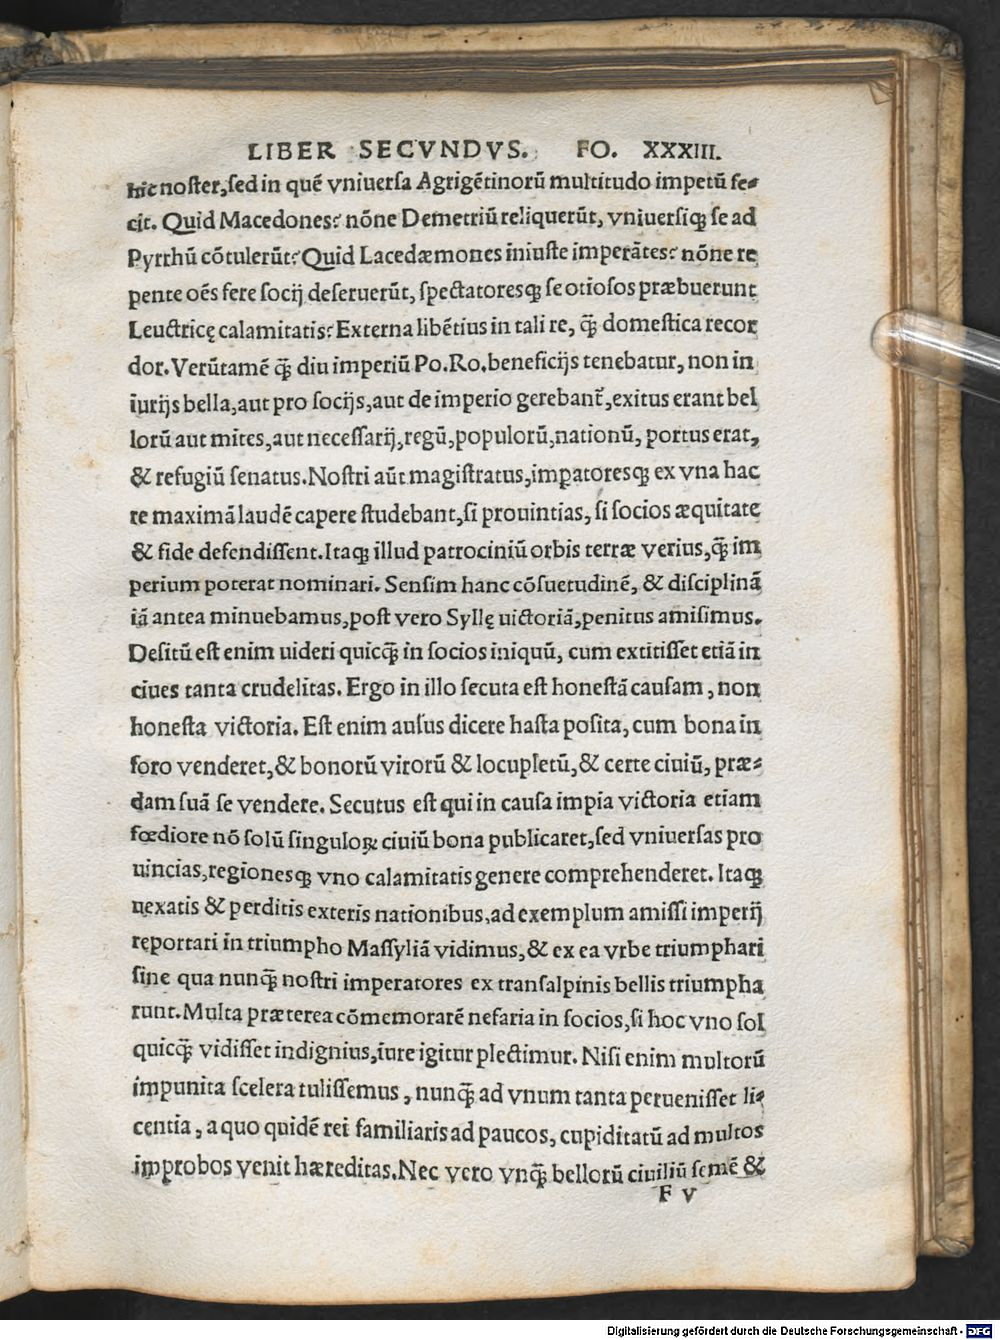 LIBER SECVNDVS. FO. XXXIII.
hic noſter, ſed in quē vniuerſa Agrigētinorū multitudo impetū fe⸗
cit. Quid Macedones? nōne Demetriū reliquerūt, vniuerſiqꝫ ſe ad
Pyrrhū cōtulerūt? Quid Lacedæmones iniuſte imperātes? nōne re
pente oēs fere ſocij deſeruerūt, ſpectatoresqꝫ ſe otioſos præbuerunt
Leuctricę calamitatis? Externa libētius in tali re, q̃ domeſtica recor
dor. Verūtamē q̃ diu imperiū Po. Ro. beneficijs tenebatur, non in
iurijs bella, aut pro ſocijs, aut de imperio gerebant̃, exitus erant bel
lorū aut mites, aut neceſſarij, regū, populorū, nationū, portus erat,
& refugiū ſenatus. Noſtri aūt magiſtratus, imꝑatoresqꝫ ex vna hac
re maximā laudē capere ſtudebant, ſi prouintias, ſi ſocios æquitate
& fide defendiſſent. Itaqꝫ illud patrociniū orbis terræ verius, q̃ im
perium poterat nominari. Senſim hanc cōſuetudinē, & diſciplinā
iā antea minuebamus, poſt vero Syllę uictoriā, penitus amiſimus.
Deſitū eſt enim uideri quicq̃ in ſocios iniquū, cum extitiſſet etiā in
ciues tanta crudelitas. Ergo in illo ſecuta eſt honeſtā cauſam, non
honeſta victoria. Eſt enim auſus dicere haſta poſita, cum bona in
foro venderet, & bonorū virorū & locupletū, & certe ciuiū, præ⸗
dam ſuā ſe vendere. Secutus eſt qui in cauſa impia victoria etiam
fœdiore nō ſolū ſinguloꝝ ciuiū bona publicaret, ſed vniuerſas pro
uincias, regionesqꝫ vno calamitatis genere comprehenderet. Itaqꝫ
uexatis & perditis exteris nationibus, ad exemplum amiſſi imperij
reportari in triumpho Maſſyliā vidimus, & ex ea vrbe triumphari
ſine qua nunq̃ noſtri imperatores ex tranſalpinis bellis triumpha
runt. Multa præterea cōmemorarē nefaria in ſocios, ſi hoc vno ſol
quicq̃ vidiſſet indignius, iure igitur plectimur. Niſi enim multorū
impunita ſcelera tuliſſemus, nunq̃ ad vnum tanta perueniſſet li⸗
centia, a quo quidē rei familiaris ad paucos, cupiditatū ad multos
improbos venit hæreditas. Nec vero vnq̃ bellorū ciuiliū ſemē &
F v
Digitalisierung gefördert durch die Deutsche Forschungsgemeinschaft - DFG